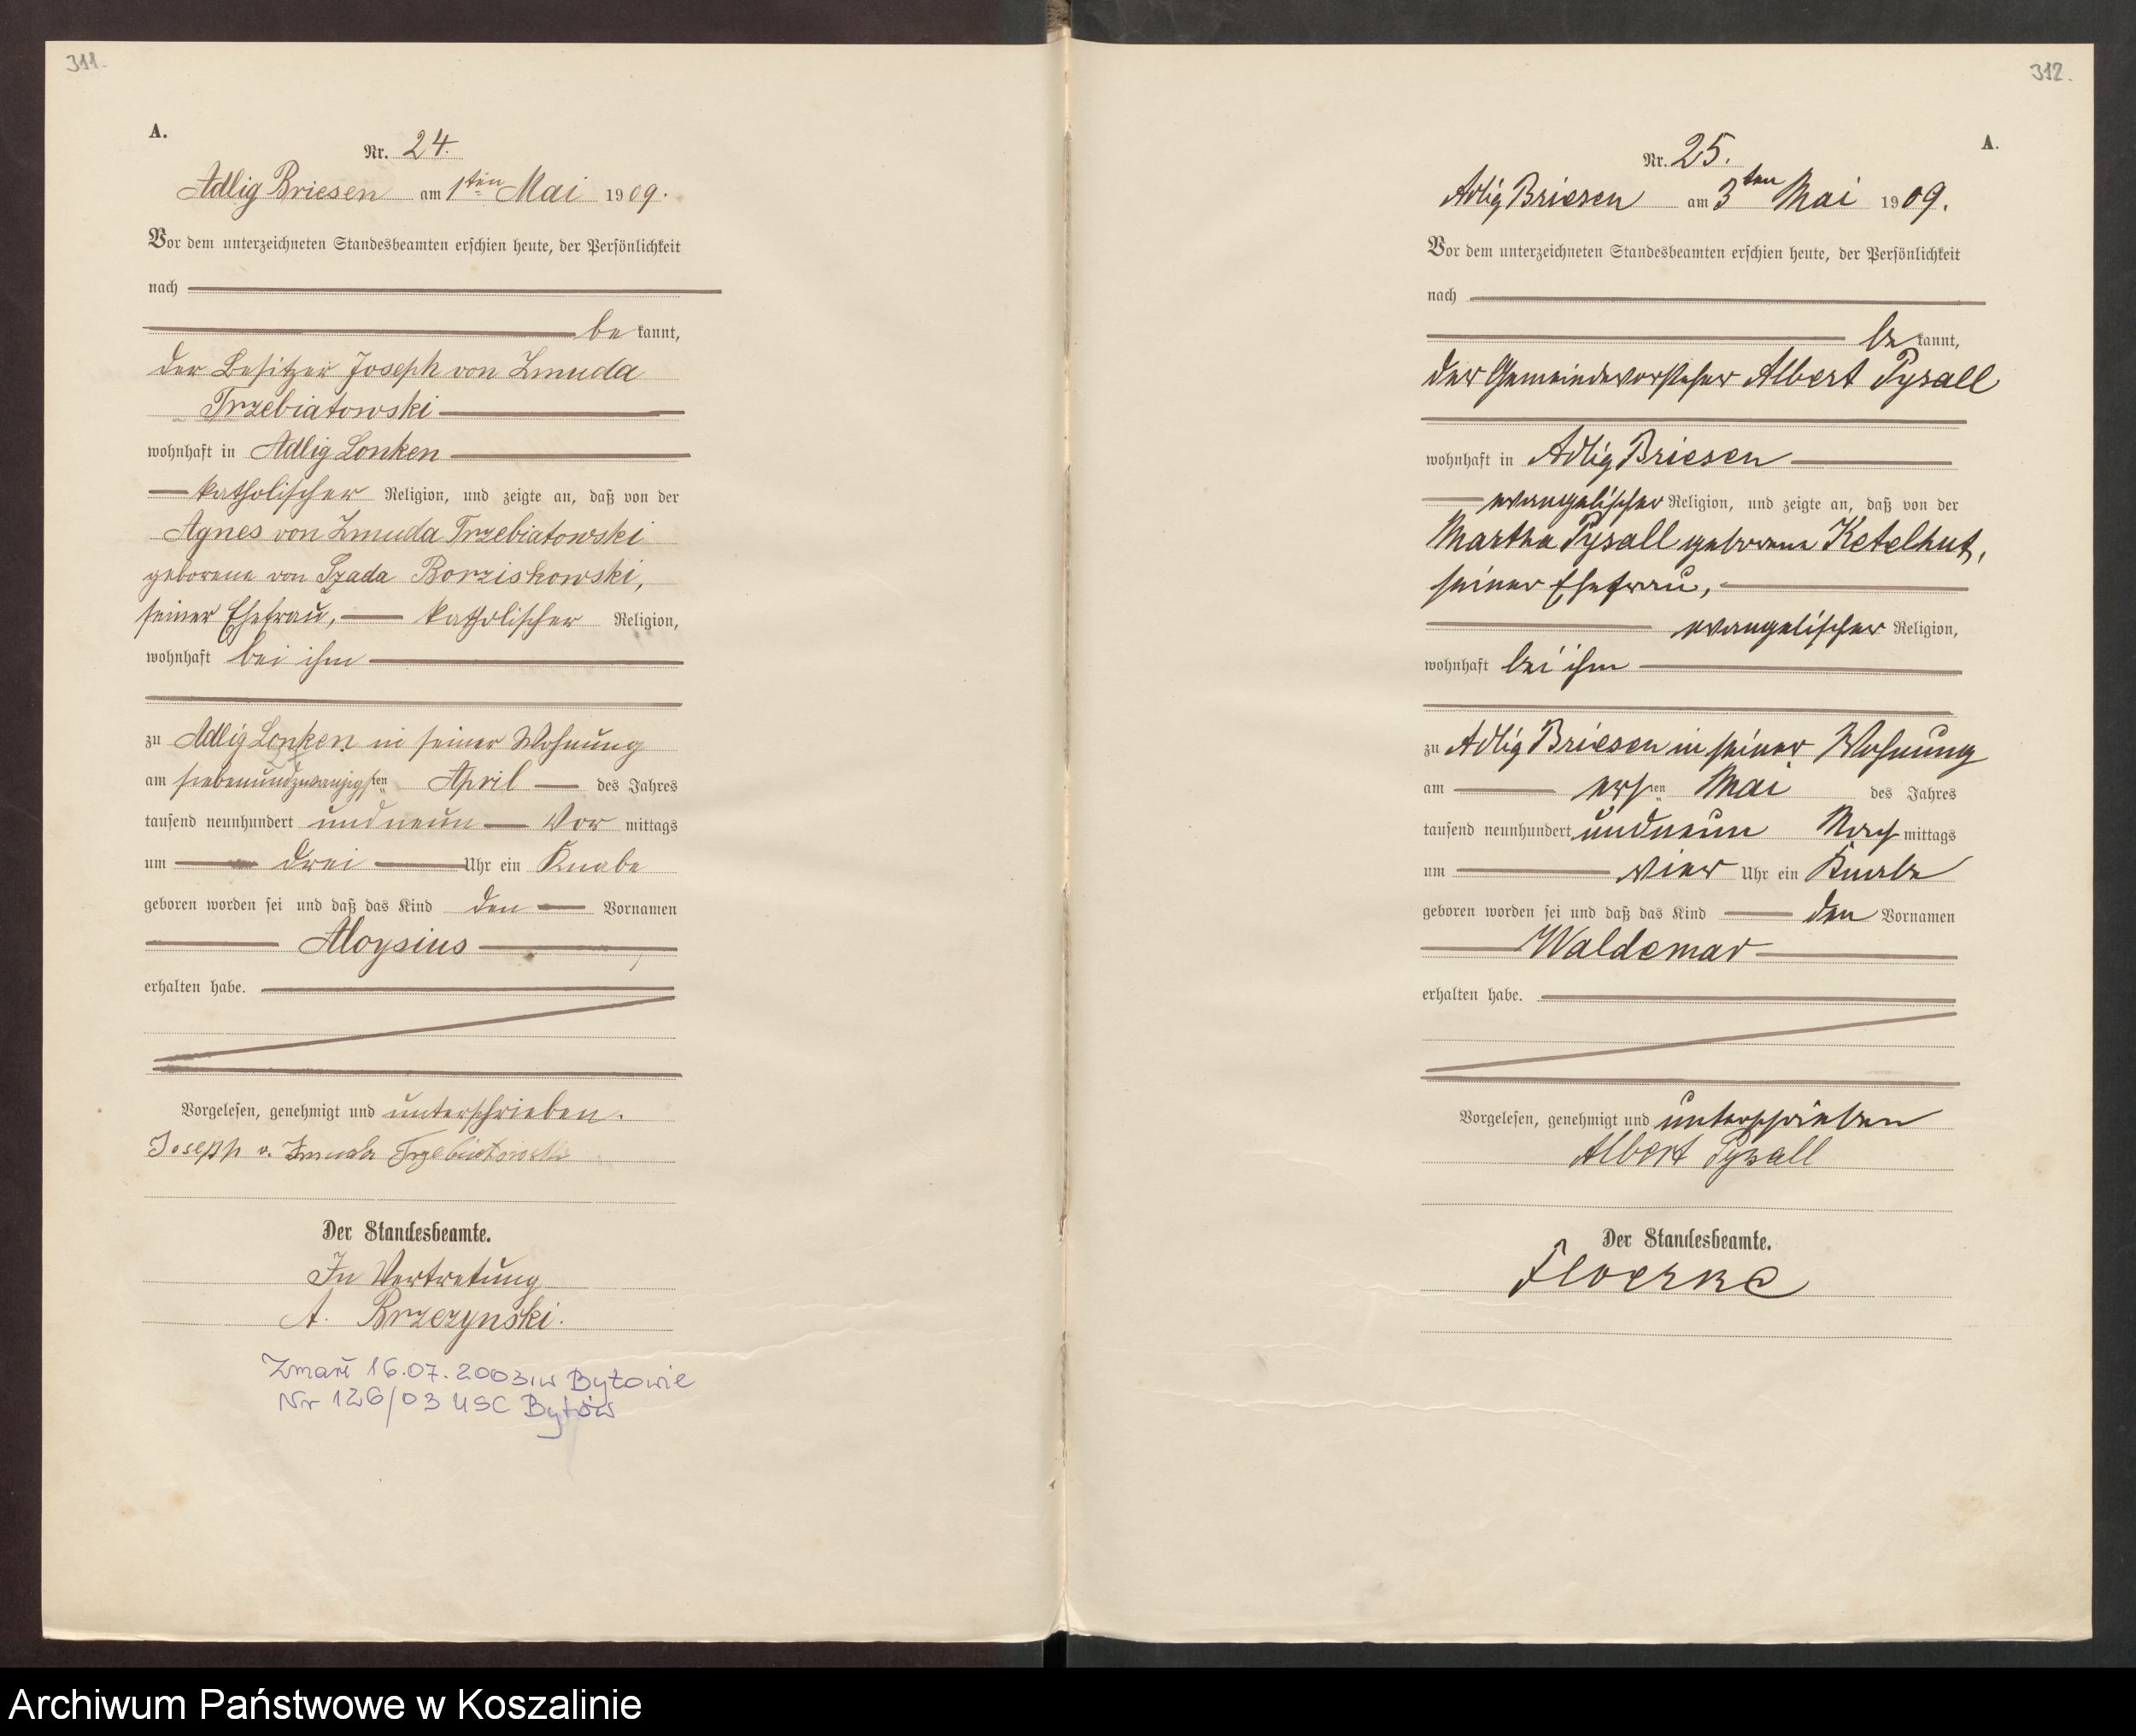 311.
A.
Nr. 24.
Adlig Briesen am 1ten Mai 1909.
Vor dem unterzeichneten Standesbeamten erschien heute, der Persönlichkeit
nach
be kannt,
der Besitzer Joseph von Zmuda
Trzebiatowski
wohnhaft in Adlig Lonken
katholischer Religion, und zeigte an, daß von der
Agnes von Zmuda Trzebiatowski
geborene von Szada Borziskowski,
seiner Ehefrau, katholischer Religion,
wohnhaft bei ihm
zu Adlig Lonken in seiner Wohnung
am siebenundzwanzigsten April des Jahres
tausend neunhundert und neun Vor mittags
um drei Uhr ein Knabe
geboren worden sei und daß das Kind den Vornamen
Aloysius
erhalten habe.
Vorgelesen, genehmigt und unterschrieben.
Joseph v. Zmuda Trzebiatowski
Der Standesbeamte.
In Vertretung
A. Brzezynski.
Zmarł 16.07.2003 w Bytowie
Nr 126/03 USC Bytów
312.
A.
Nr. 25.
Adlig Briesen am 3ten Mai 1909.
Vor dem unterzeichneten Standesbeamten erschien heute, der Persönlichkeit
nach
be kannt,
der Gemeindevorsteher Albert Pysall
wohnhaft in Adlig Briesen
evangelischer Religion, und zeigte an, daß von der
Martha Pysall geborene Ketelhut,
seiner Ehefrau,
evangelischer Religion,
wohnhaft bei ihm
zu Adlig Briesen in seiner Wohnung
am ersten Mai des Jahres
tausend neunhundert und neun Nach mittags
um vier Uhr ein Knabe
geboren worden sei und daß das Kind den Vornamen
Waldemar
erhalten habe.
Vorgelesen, genehmigt und unterschrieben
Albert Pysall
Der Standesbeamte.
Floerke
Archiwum Państwowe w Koszalinie